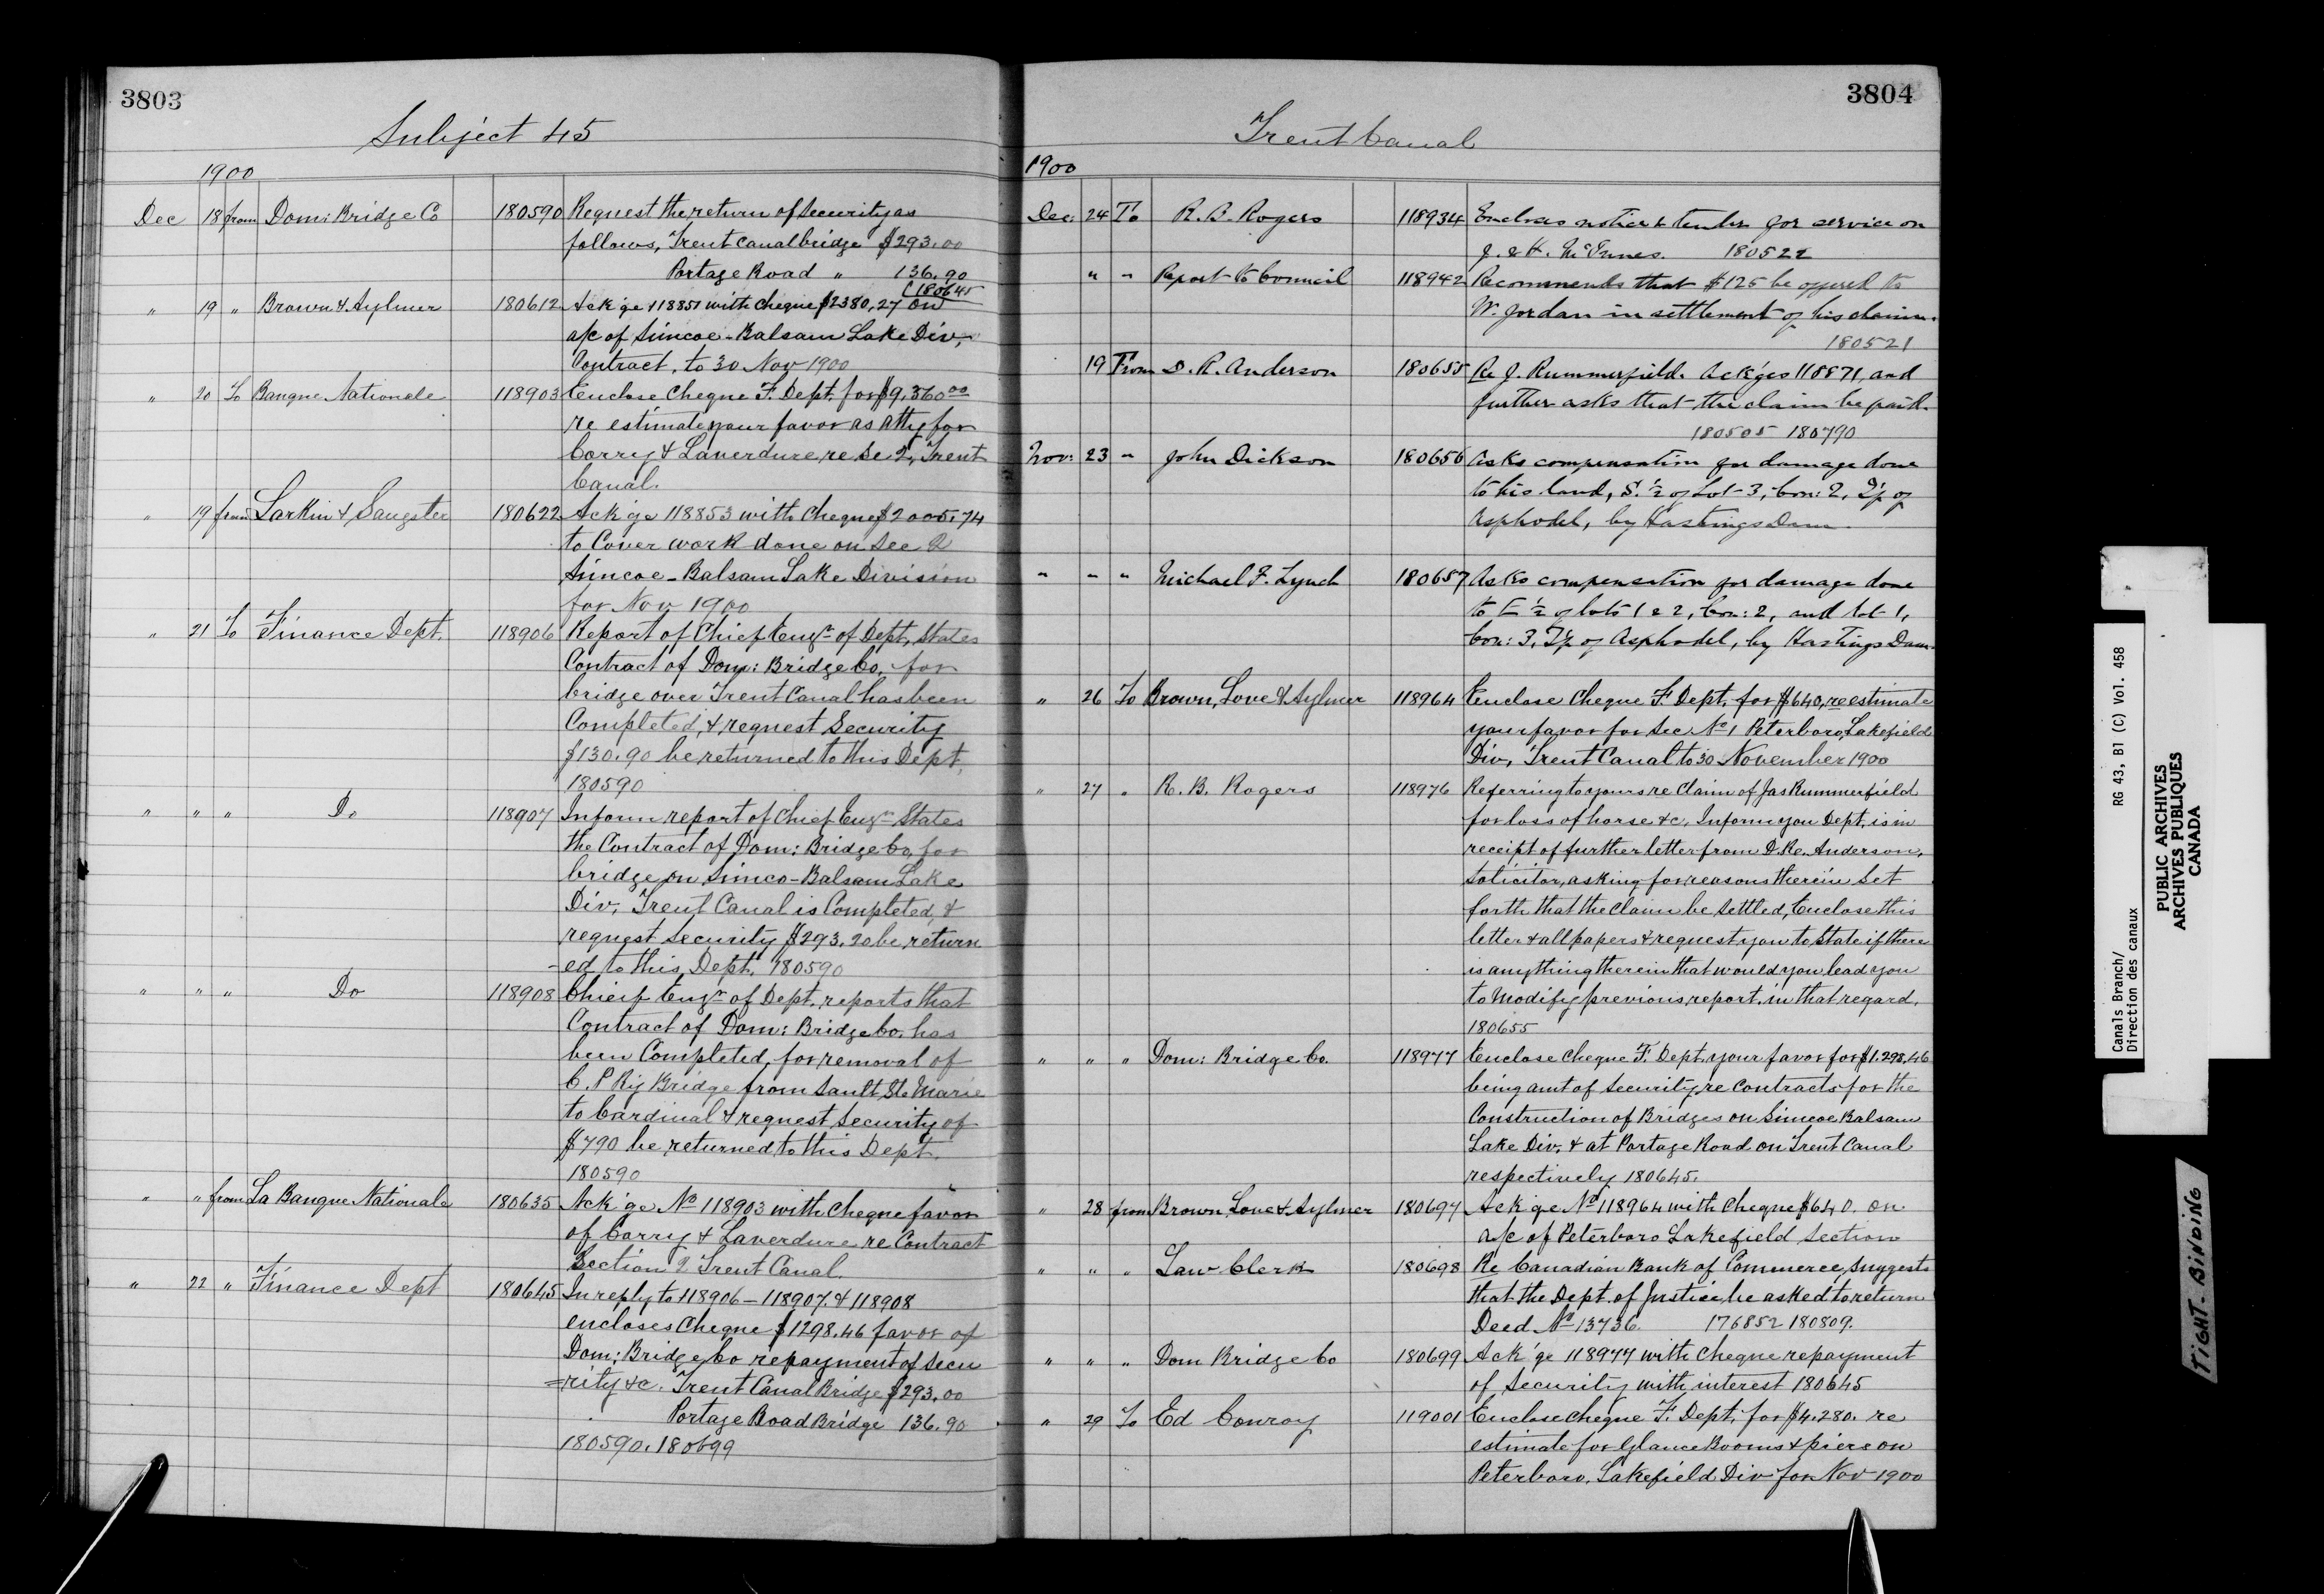 3803
Subject 45
1900
Dec 18 from Dom: Bridge Co 180590 Request the return of Security as
follows, Trent Canal bridge $293.00
Portage Road " 136.90
(180645
" 19 " Brown & Aylmer 180612 Ack'ge 118851 with cheque $2380,27 on
a/c of Simcoe-Balsam Lake Div,
Contract, to 30 Nov 1900
" 20 To Banque Nationale 118903 Enclose Cheque F. Dept. for $9,360.00
re estimate your favor as Atty for
Corry & Laverdure re Sec 2, Trent
Canal.
" 19 from Larkin & Sangster 180622 Ack'ge 118853 with Cheque $2005.74
to Cover work done on Sec 2
Simcoe-Balsam Lake Division
for Nov 1900
" 21 To Finance Dept. 118906 Report of Chief Engr of Dept, States
Contract of Dom: Bridge Co, for
bridge over Trent Canal has been
Completed, & request Security
$130.90 be returned to this Dept,
180590
" " " Do 118907 Inform report of Chief Engr States
the Contract of Dom: Bridge Co, for
bridge on Simco-Balsam Lake
Div, Trent Canal is Completed, &
request Security $293.20 be return
-ed to this Dept. 180590
" " " Do 118908 Chief Engr of Dept. reports that
Contract of Dom: Bridge Co. has
been Completed, for removal of
C. P Ry Bridge from Sault Ste Marie
to Cardinal & request Security of
$790 be returned to this Dept.
180590
" " from La Banque Nationale 180635 Ack'ge No 118903 with Cheque favor
of Corry & Laverdure re Contract
Section 2 Trent Canal.
" 22 " Finance Dept 180645 In reply to 118906 - 118907. & 118908
encloses Cheque $1298.46 favor of
Dom: Bridge Co repayment of Secu
=rity &c. Trent Canal Bridge $293.00
Portage Road Bridge 136.90
180590. 180699
3804
Trent Canal
1900
Dec: 24 To R. B. Rogers 118934 Encloses notice & tender for service on
J. & H. McInnes. 180522
" " Report to Council 118942 Recommends that $125 be offered to
W. Jordan in settlement of his claim.
180521
19 From D. R. Anderson 180655 Re J. Rummerfield. Ack'ges 118871, and
further asks that the claim be paid.
180505 180790
Nov: 23 " John Dickson 180656 Asks compensation for damage done
to his land, S. ½ of Lot 3, Con: 2, T'p of
Asphodel, by Hastings Dam.
" " " Michael F. Lynch 180657 Asks compensation for damage done
to E ½ of lots 1 & 2, Con: 2, and lot 1,
Con: 3, T'p of Asphodel, by Hastings Dam.
" 26 To Brown, Love & Aylmer 118964 Enclose Cheque F. Dept. for $640, re estimate
your favor for Sec No 1 Peterboro, Lakefield
Div, Trent Canal to 30 November 1900
" 27 " R. B. Rogers 118976 Referring to yours re Claim of Jas Rummerfield
for loss of horse &c, Inform you Dept. is in
receipt of further letter from D. R. Anderson,
Solicitor, asking for reasons therein Set
forth that the Claim be Settled, Enclose this
letter & all papers & request you to State if there
is anything therein that would you lead you
to Modify previous report in that regard.
180655
" " " Dom: Bridge Co. 118977 Enclose Cheque F. Dept. your favor for $1.298.46
being amt of Security re Contracts for the
Construction of Bridges on Simcoe Balsam
Lake Div. & at Portage Road on Trent Canal
respectively 180645.
" 28 from Brown Love & Aylmer 180697 Ack'ge No 118964 with Cheque $640. on
a/c of Peterboro Lakefield Section
" " " Law Clerk 180698 Re Canadian Bank of Commerce, Suggests
that the Dept. of Justice be asked to return
Deed No 13736. 176852 180809.
" " " Dom Bridge Co 180699 Ack'ge 118977 with Cheque repayment
of Security with interest 180645
" 29 To Ed Conroy 119001 Enclose Cheque F. Dept. for $4.280. re
estimate for Glance Booms & piers on
Peterboro, Lakefield Div for Nov 1900
Canals Branch/ RG 43, B1 (C) Vol. 458
Direction des canaux
PUBLIC ARCHIVES
ARCHIVES PUBLIQUES
CANADA
TIGHT. BINDING